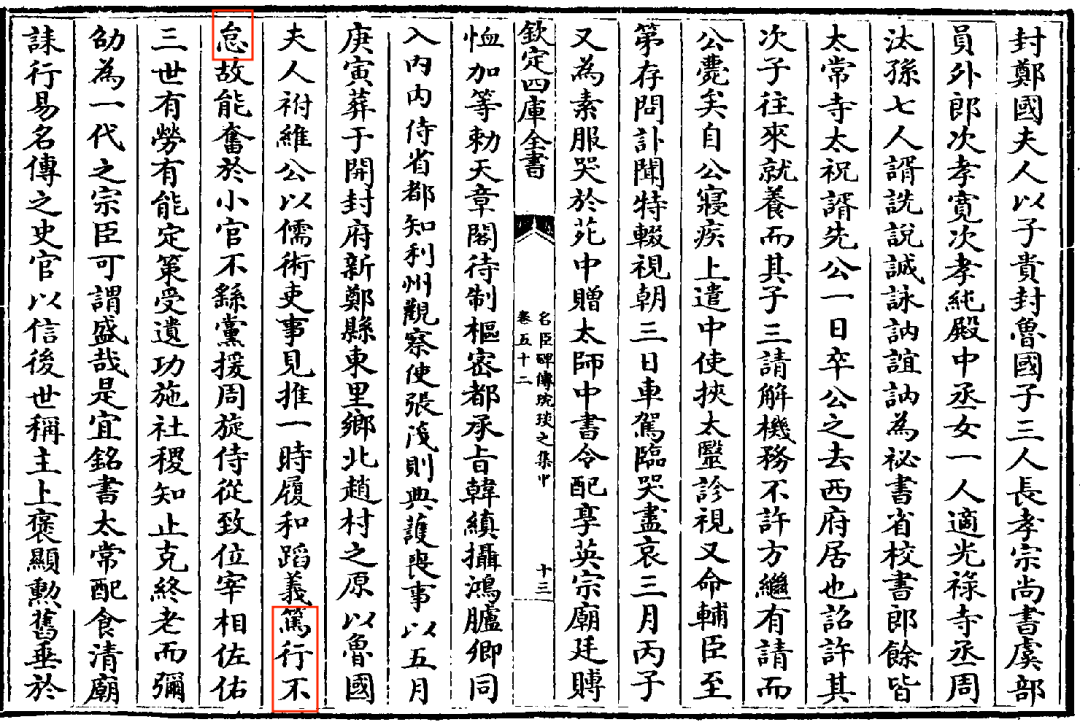 封鄭國夫人以子貴封魯國子三人長孝宗尚書虞部
員外郎次孝寛次孝純殿中丞女一人適光祿寺丞周
汰孫七人諝説説誠詠訥誼訥為祕書省校書郎餘皆
太常寺太祝諝先公一日卒公之去西府居也詔許其
次子往來就養而其子三請解機務不許方繼有請而
公薨矣自公寢疾上遣中使挾太毉診視又命輔臣至
第存問訃聞特輟視朝三日車駕臨哭盡哀三月丙子
又為素服哭於苑中贈太師中書令配享英宗廟廷賻
欽定四庫全書
名臣碑傳琬琰之集中
卷五十二
十三
恤加等勅天章閣待制樞密都承旨韓縝攝鴻臚卿同
入内内侍省都知利州觀察使張茂則典護喪事以五月
庚寅葬于開封府新鄭縣東里鄉北趙村之原以魯國
夫人祔維公以儒術吏事見推一時履和蹈義篤行不
怠故能奮於小官不繇黨援周旋侍從致位宰相佐佑
三世有勞有能定策受遺功施社稷知止克終老而彌
劭為一代之宗臣可謂盛哉是宜銘書太常配食清廟
誄行易名傳之史官以信後世稱主上褒顯勲舊垂於